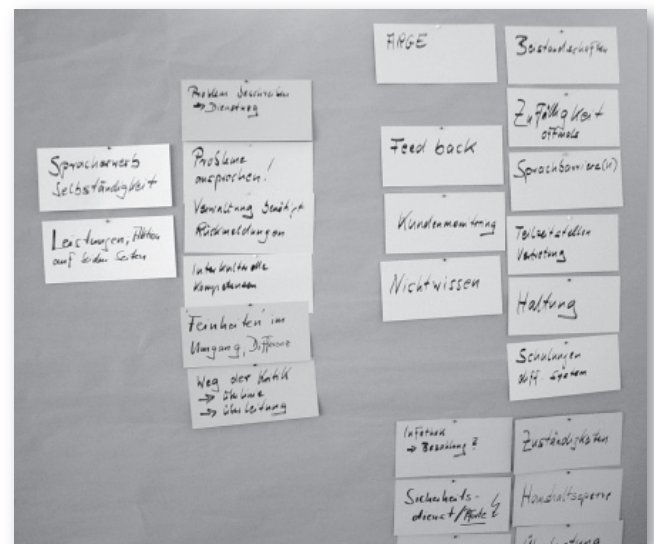 Spracherwerb
Selbständigkeit
Leistungen,
auf beiden Seiten
Problem beschreiben
→ Dienstweg
Probleme
ansprechen!
Verwaltung benötigt
Rückmeldungen
Interkulturelle
Kompetenzen
Feinheiten im
Umgang, Differenz
Weg der Kritik
→
→
ARGE
Feed back
Kundenmonitoring
Nichtwissen
Infothek
→ Bezahlung?
Sicherheits-
dienst/Pforte
Beistandschaften
Zufälligkeit
oftmals
Sprachbarriere(n)
Teilzeitstellen
Vertretung
Haltung
Schulungen
diff. System
Zuständigkeiten
Haushaltssperre